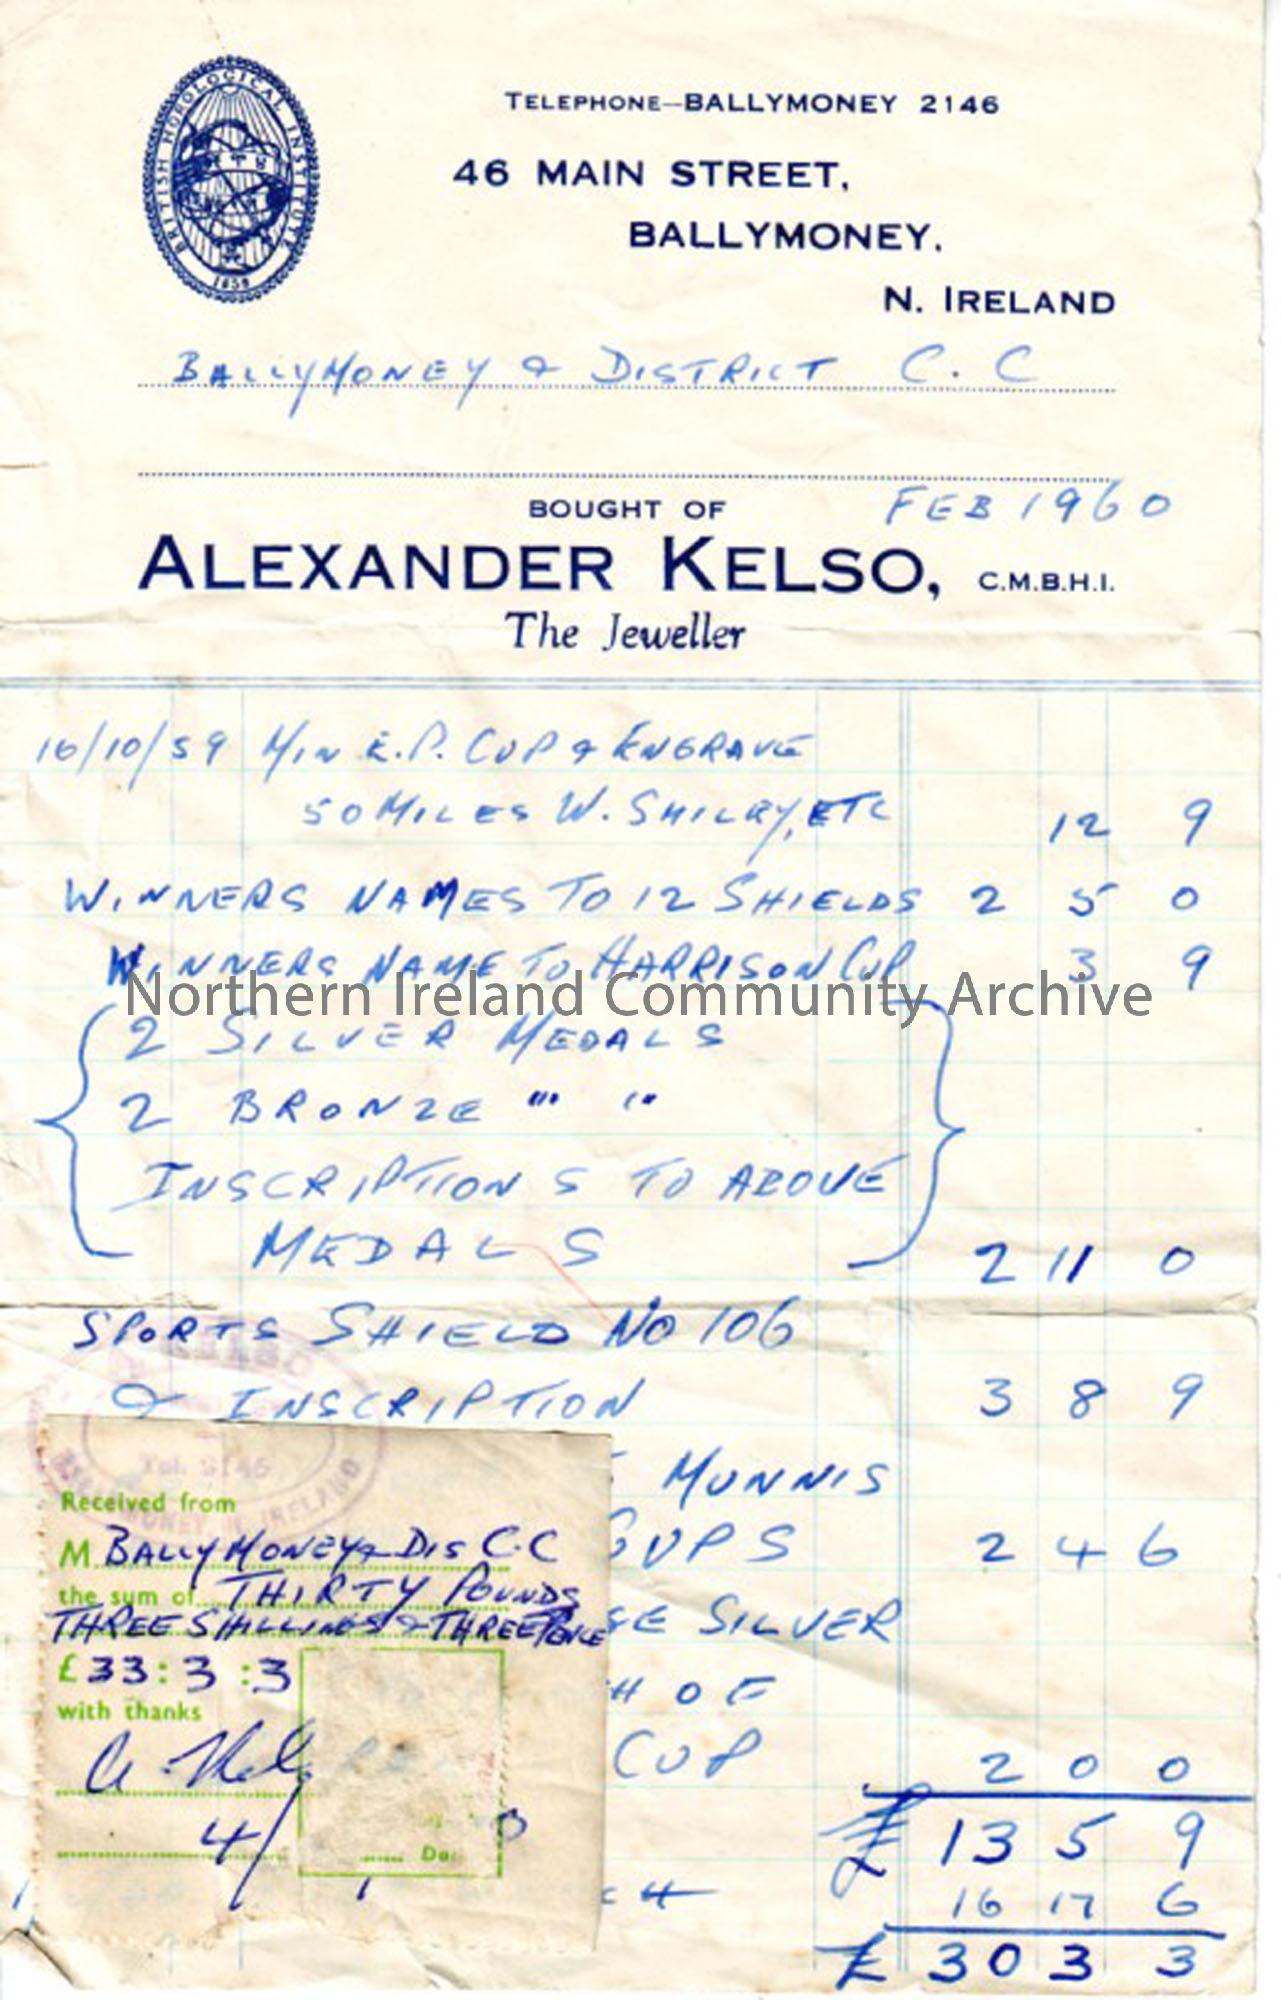 BRITISH HOROLOGICAL INSTITUTE
1858
TELEPHONE—BALLYMONEY 2146
46 MAIN STREET,
BALLYMONEY,
N. IRELAND
BALLYMONEY & DISTRICT C. C
BOUGHT OF
FEB 1960
ALEXANDER KELSO, C.M.B.H.I.
The Jeweller
16/10/59 MIN E.P. CUP & ENGRAVE
50 MILES W. ETC 12 9
WINNERS NAMES TO 12 SHIELDS 2 5 0
WINNERS NAME TO HARRISON CUP 3 9
Northern Ireland Community Archive
2 SILVER MEDALS
2 BRONZE " "
INSCRIPTIONS TO ABOVE
MEDALS 2 11 0
SPORTS SHIELD NO 106
& INSCRIPTION 3 8 9
MUNNIS
CUPS 2 4 6
SILVER
OF
CUP 2 0 0
£ 13 5 9
16 17 6
£ 30 3 3
KELSO
Tel. 2146
BALLYMONEY N. IRELAND
Received from
M BALLYMONEY & DIS C.C
the sum of THIRTY POUNDS
THREE SHILLINGS & THREEPENCE
£ 33 : 3 : 3
with thanks
4/